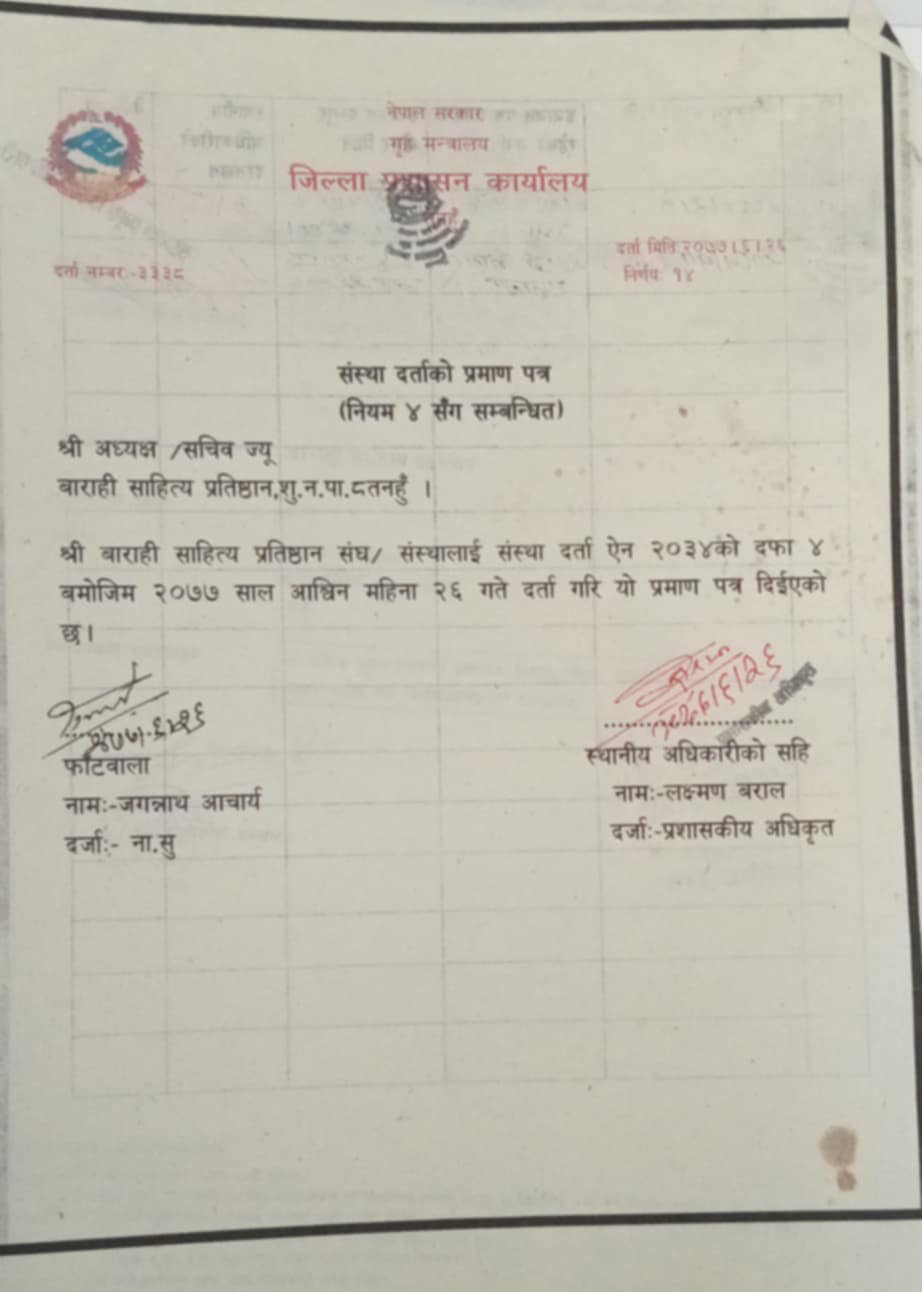 नेपाल सरकार
गृह मन्त्रालय
जिल्ला प्रशासन कार्यालय
तनहुँ
दर्ता मिति:२०७७।६।२६
दर्ता नम्बर:-३३३८
निर्णय १४
संस्था दर्ताको प्रमाण पत्र
(नियम ४ सँग सम्बन्धित)
श्री अध्यक्ष /सचिव ज्यू
बाराही साहित्य प्रतिष्ठान,शु.न.पा.८तनहुँ ।
श्री बाराही साहित्य प्रतिष्ठान संघ/ संस्थालाई संस्था दर्ता ऐन २०३४को दफा ४
बमोजिम २०७७ साल आश्विन महिना २६ गते दर्ता गरि यो प्रमाण पत्र दिईएको
छ।
फाँटवाला
नामः-जगन्नाथ आचार्य
दर्जाः- ना.सु
स्थानीय अधिकारीको सहि
नामः-लक्ष्मण बराल
दर्जाः-प्रशासकीय अधिकृत